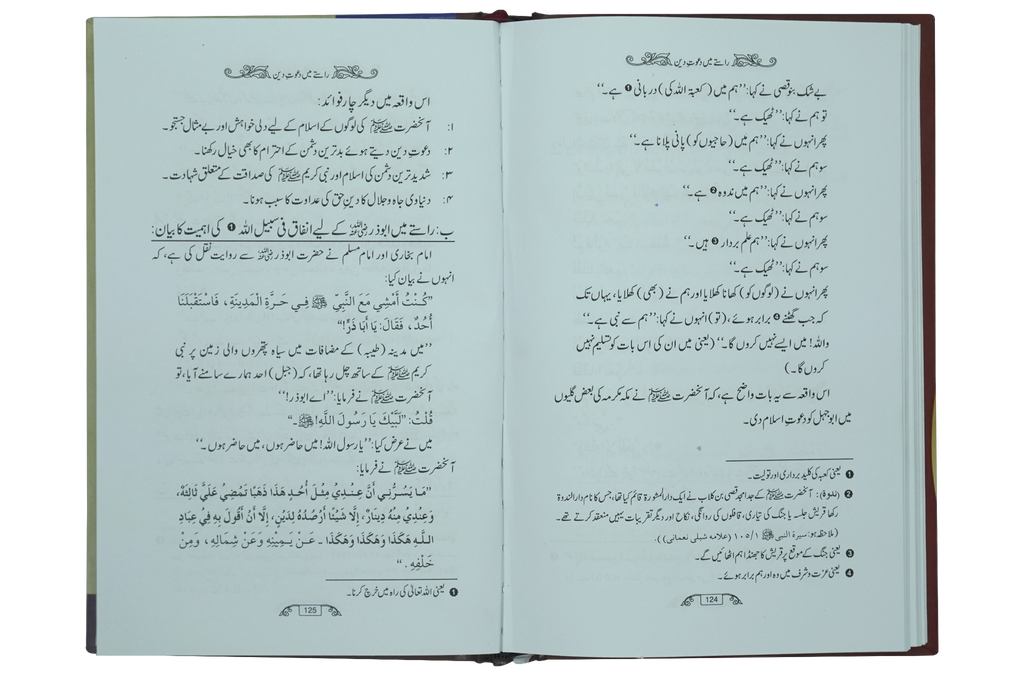 راستے میں دعوتِ دین
بے شک بنو قصی نے کہا: ’’ہم میں (کعبۃ اللہ کی) دربانی ❶ ہے۔‘‘
تو ہم نے کہا: ’’ٹھیک ہے۔‘‘
پھر انہوں نے کہا: ’’ہم میں (حاجیوں کو) پانی پلانا ہے۔‘‘
سو ہم نے کہا: ’’ٹھیک ہے۔‘‘
پھر انہوں نے کہا: ’’ہم میں ندوہ ❷ ہے۔‘‘
سو ہم نے کہا: ’’ٹھیک ہے۔‘‘
پھر انہوں نے کہا: ’’ہم علم بردار ❸ ہیں۔‘‘
سو ہم نے کہا: ’’ٹھیک ہے۔‘‘
پھر انہوں نے (لوگوں کو) کھانا کھلایا اور ہم نے (بھی) کھلایا، یہاں تک
کہ جب گھٹنے ❹ برابر ہوئے، (تو) انہوں نے کہا: ’’ہم سے نبی ہے۔‘‘
واللہ! میں ایسے نہیں کروں گا۔‘‘ (یعنی میں ان کی اس بات کو تسلیم نہیں
کروں گا۔)
اس واقعہ سے یہ بات واضح ہے، کہ آنحضرت ﷺ نے مکہ مکرمہ کی بعض گلیوں
میں ابوجہل کو دعوتِ اسلام دی۔
❶ یعنی کعبہ کی کلید برداری اور تولیت۔
❷ (ندوة): آنحضرت ﷺ کے جد امجد قصی بن کلاب نے ایک دارالمشورۃ قائم کیا تھا، جس کا نام دارالندوۃ
رکھا قریش جلسہ یا جنگ کی تیاری، قافلوں کی روانگی، نکاح اور دیگر تقریبات یہیں منعقد کرتے تھے۔
(ملاحظہ ہو: سیرة النبی ﷺ ۱/۱۰۵ (علامہ شبلی نعمانی)).
❸ یعنی جنگ کے موقع پر قریش کا جھنڈا ہم اٹھائیں گے۔
❹ یعنی عزت و شرف میں وہ اور ہم برابر ہوئے۔
124
راستے میں دعوتِ دین
اس واقعہ میں دیگر چار فوائد:
۱: آنحضرت ﷺ کی لوگوں کے اسلام کے لیے دلی خواہش اور بے مثال جستجو۔
۲: دعوتِ دین دیتے ہوئے بدترین دشمن کے احترام کا بھی خیال رکھنا۔
۳: شدید ترین دشمن کی اسلام اور نبی کریم ﷺ کی صداقت کے متعلق شہادت۔
۴: دنیاوی جاہ و جلال کا دینِ حق کی عداوت کا سبب ہونا۔
ب: راستے میں ابوذر رضی اللہ عنہ کے لیے انفاق فی سبیل اللہ ❶ کی اہمیت کا بیان:
امام بخاری اور امام مسلم نے حضرت ابوذر رضی اللہ عنہ سے روایت نقل کی ہے، کہ
انہوں نے بیان کیا:
”كُنْتُ أَمْشِي مَعَ النَّبِيِّ ﷺ فِي حَرَّةِ الْمَدِينَةِ، فَاسْتَقْبَلَنَا
أُحُدٌ، فَقَالَ: يَا أَبَا ذَرٍّ!“
’’میں مدینہ (طیبہ) کے مضافات میں سیاہ پتھروں والی زمین پر نبی
کریم ﷺ کے ساتھ چل رہا تھا، کہ (جبل) احد ہمارے سامنے آیا، تو
آنحضرت ﷺ نے فرمایا: ’’اے ابوذر!‘‘
قُلْتُ: ”لَبَّيْكَ يَا رَسُولَ اللّٰهِ! ﷺ۔“
میں نے عرض کیا: ’’یا رسول اللہ! میں حاضر ہوں، میں حاضر ہوں۔‘‘
آنحضرت ﷺ نے فرمایا:
”مَا يَسُرُّنِي أَنَّ عِنْدِي مِثْلَ أُحُدٍ هَذَا ذَهَبًا تَمْضِي عَلَيَّ ثَالِثَةٌ،
وَعِنْدِي مِنْهُ دِينَارٌ، إِلَّا شَيْئًا أَرْصُدُهُ لِدَيْنٍ، إِلَّا أَنْ أَقُولَ بِهِ فِي عِبَادِ
اللّٰهِ هَكَذَا وَهَكَذَا وَهَكَذَا۔ عَنْ يَمِينِهِ وَعَنْ شِمَالِهِ، وَمِنْ
خَلْفِهِ.“
❶ یعنی اللہ تعالیٰ کی راہ میں خرچ کرنا۔
125